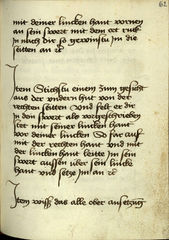 62
mit deiner lincken hant vornen
an sein swert mit dem ort ruck
in nÿder die so gewinstu im die
seitten an rc
Item Stichstu einem zum gesicht
aus der undern hut von der
rechten sitten Und felt er dir
in dein swert als vorgeschrieben
ist mit seiner lincken hant
vor deiner lincken So far auf
mit der rechten hant und mit
der lincken hant leitte in sein
swert aussen über sein lincke
hant und setze im an rc
Item wiss das alle ober ansetzung